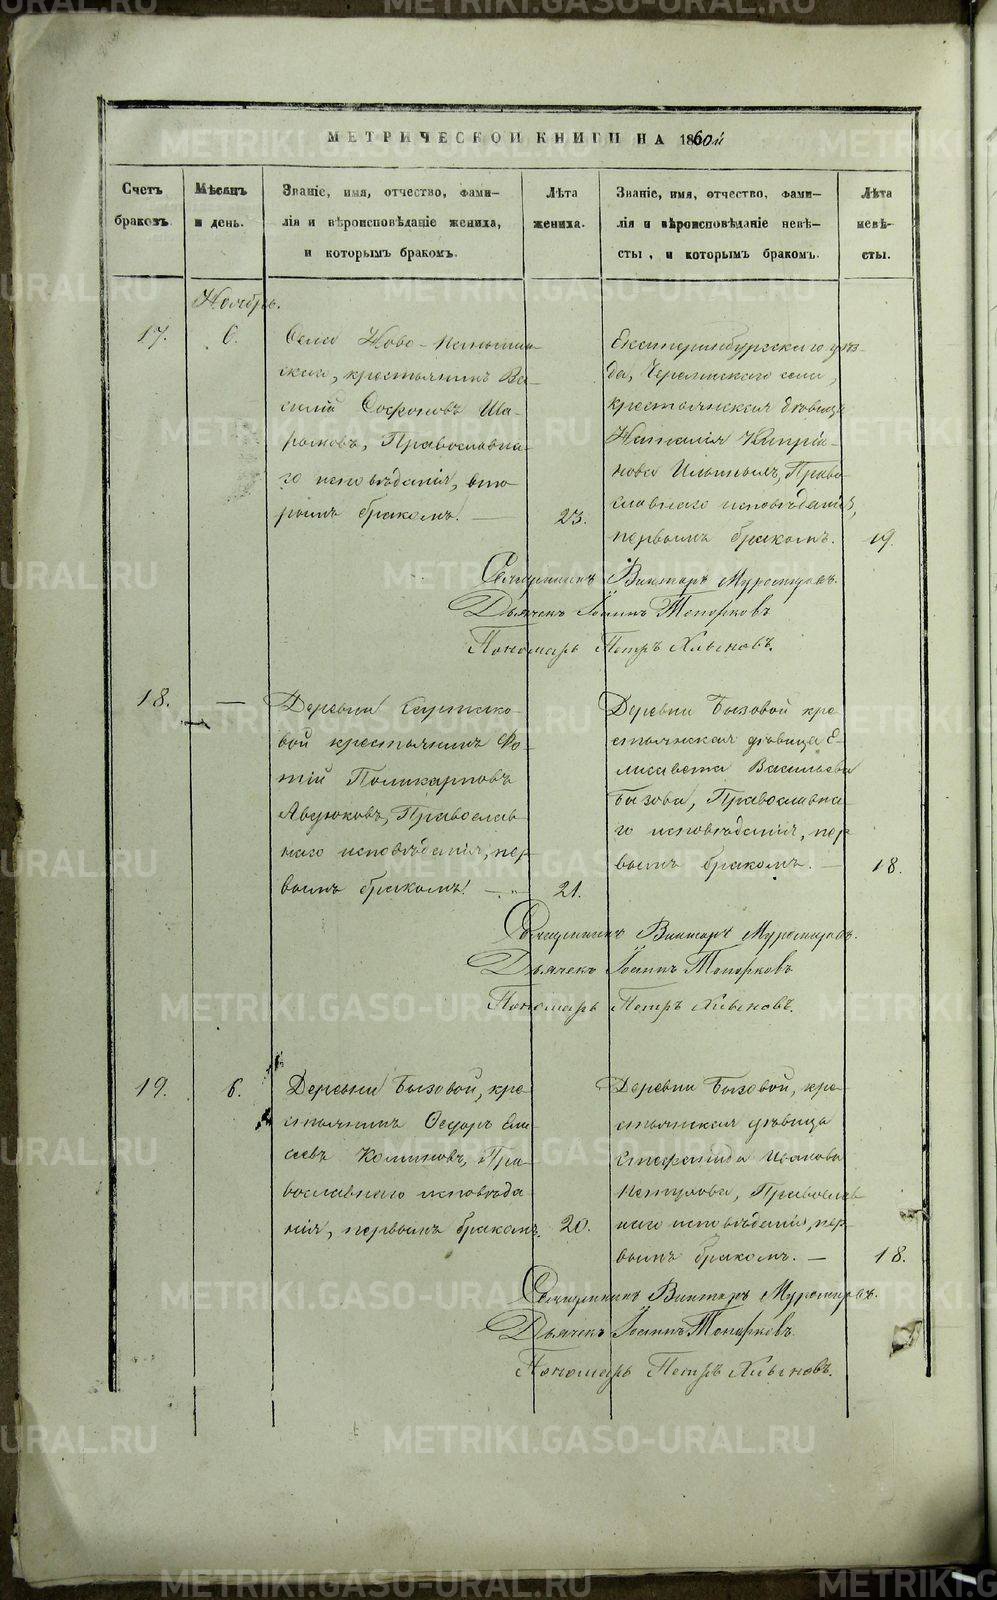 МЕТРИЧЕСКОЙ КНИГИ НА 1860й
Счетъ браковъ.
Мѣсяцъ и день.
Званіе, имя, отчество, фами-
лія и вѣроисповѣданіе жениха,
и которымъ бракомъ.
Лѣта жениха.
Званіе, имя, отчество, фами-
лія и вѣроисповѣданіе невѣ-
сты, и которымъ бракомъ.
Лѣта невѣ-
сты.
Ноябрь.
17.
6.
Села Ново-Пышмин-
скаго, крестьянинъ Ва-
силій Софоновъ Ша-
рыповъ, Православна-
го исповѣданія, вто-
рымъ бракомъ. —
23.
Екатеринбургскаго уѣз-
да, Черемисскаго села,
крестьянская дѣвица
Наталія Кипрія-
нова Ильиныхъ, Право-
славнаго исповѣданія,
первымъ бракомъ.
19.
Священникъ Викторъ
Дьячекъ Іоаннъ Топорковъ
Пономарь Петръ Хлыновъ.
18.
—
Деревни
вой крестьянинъ Фо-
тій Поликарповъ
Авдюковъ, Православ-
наго исповѣданія, пер-
вымъ бракомъ. —
21.
Деревни Бызовой кре-
стьянская дѣвица Е-
лисавета Васильева
Бызова, Православна-
го исповѣданія, пер-
вымъ бракомъ. —
18.
Священникъ Викторъ
Дьячекъ Іоаннъ Топорковъ
Пономарь Петръ Хлыновъ.
19.
6.
Деревни Бызовой, кре-
стьянинъ Ѳедоръ Ели-
сѣевъ Коминовъ, Пра-
вославнаго исповѣда-
нія, первымъ бракомъ.
20.
Деревни Бызовой, кре-
стьянская дѣвица
Стефанида Иванова
Пятулова, Православ-
наго исповѣданія, пер-
вымъ бракомъ. —
18.
Священникъ Викторъ
Дьячекъ Іоаннъ Топорковъ.
Пономарь Петръ Хлыновъ.
METRIKI.GASO-URAL.RU